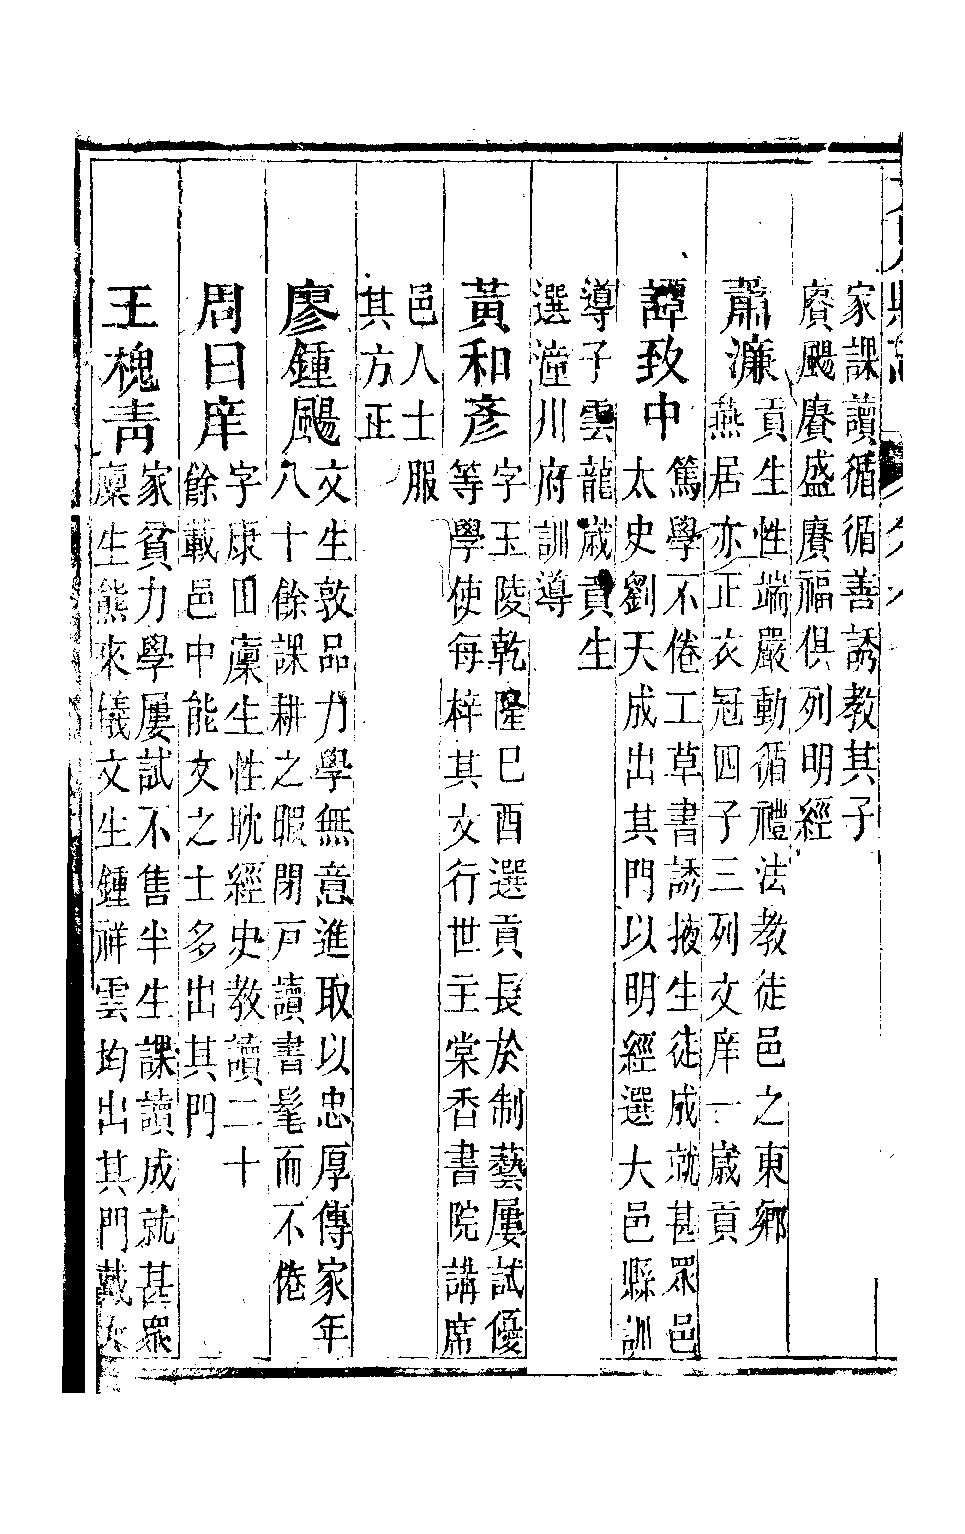 家課讀循循善誘教其子
賡颺賡盛賡賡福俱列明經
蕭濂
貢生性端嚴動循禮法教徒邑之東鄉
燕居亦正衣冠四子三列文庠一歲貢
譚致中
篤學不倦工草書誘掖生徒成就甚眾邑
太史劉天成出其門以明經選大邑縣訓
導子雲龍歲貢生
選潼川府訓導
黃和彥
字玉陵乾隆巳酉選貢長於制藝屢試優
等學使每梓其文行世主棠香書院講席
邑人士服
其方正
廖鍾颺
文生敦品力學無意進取以忠厚傳家年
八十餘課耕之暇閉戸讀書耄而不倦
周日庠
字康田廩生性耽經史教讀二十
餘載邑中能文之士多出其門
王槐青
家貧力學屢試不售半生課讀成就甚眾
廩生熊來儀文生鍾祥雲均出其門戴